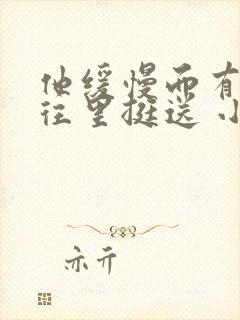 他缓慢而有
往里挺送 小
亦亓